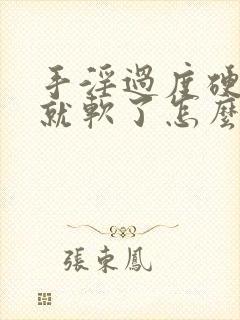 手淫過度硬
就軟了怎麼
張東鳳